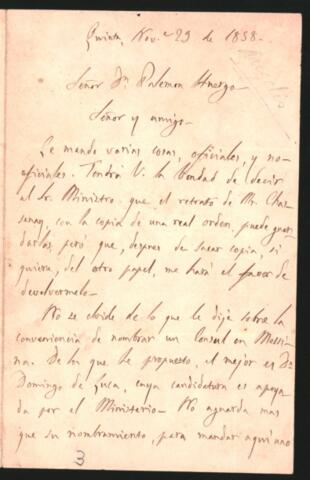 Quinta, Nov.e 29 de 1858-
Señor Dn. Palemon Huergo-
Señor y amigo-
Le mando varias cosas, oficiales, y no-
oficiales. Tendrá V. la bondad de decir
al Sr. Ministro que el retrato de Mr. Chas-
senay, con la copia de una real orden, puede guar-
darlas pero que, despues de sacar copia, si
quiere, del otro papel, me hará el favor de
devolvermelo-
No se olvide de lo que le dije sobre la
conveniencia de nombrar un Consul en Messi-
na. De los que he propuesto, el mejor es Dn.
Domingo de Luca, cuya candidatura es apoya
da por el Ministerio- No aguarda mas
que su nombramiento, para mandar aquí uno
3